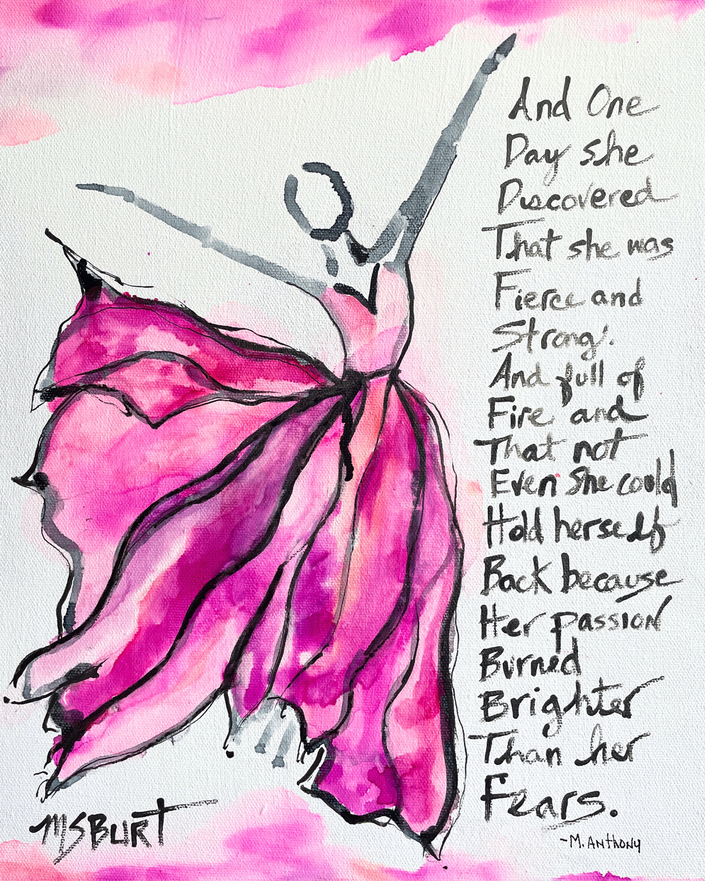 And One
Day she
Discovered
That she was
Fierce and
Strong.
And full of
Fire and
That not
Even she could
Hold herself
Back because
Her passion
Burned
Brighter
Than her
Fears.
~M. Anthony
MSBURT